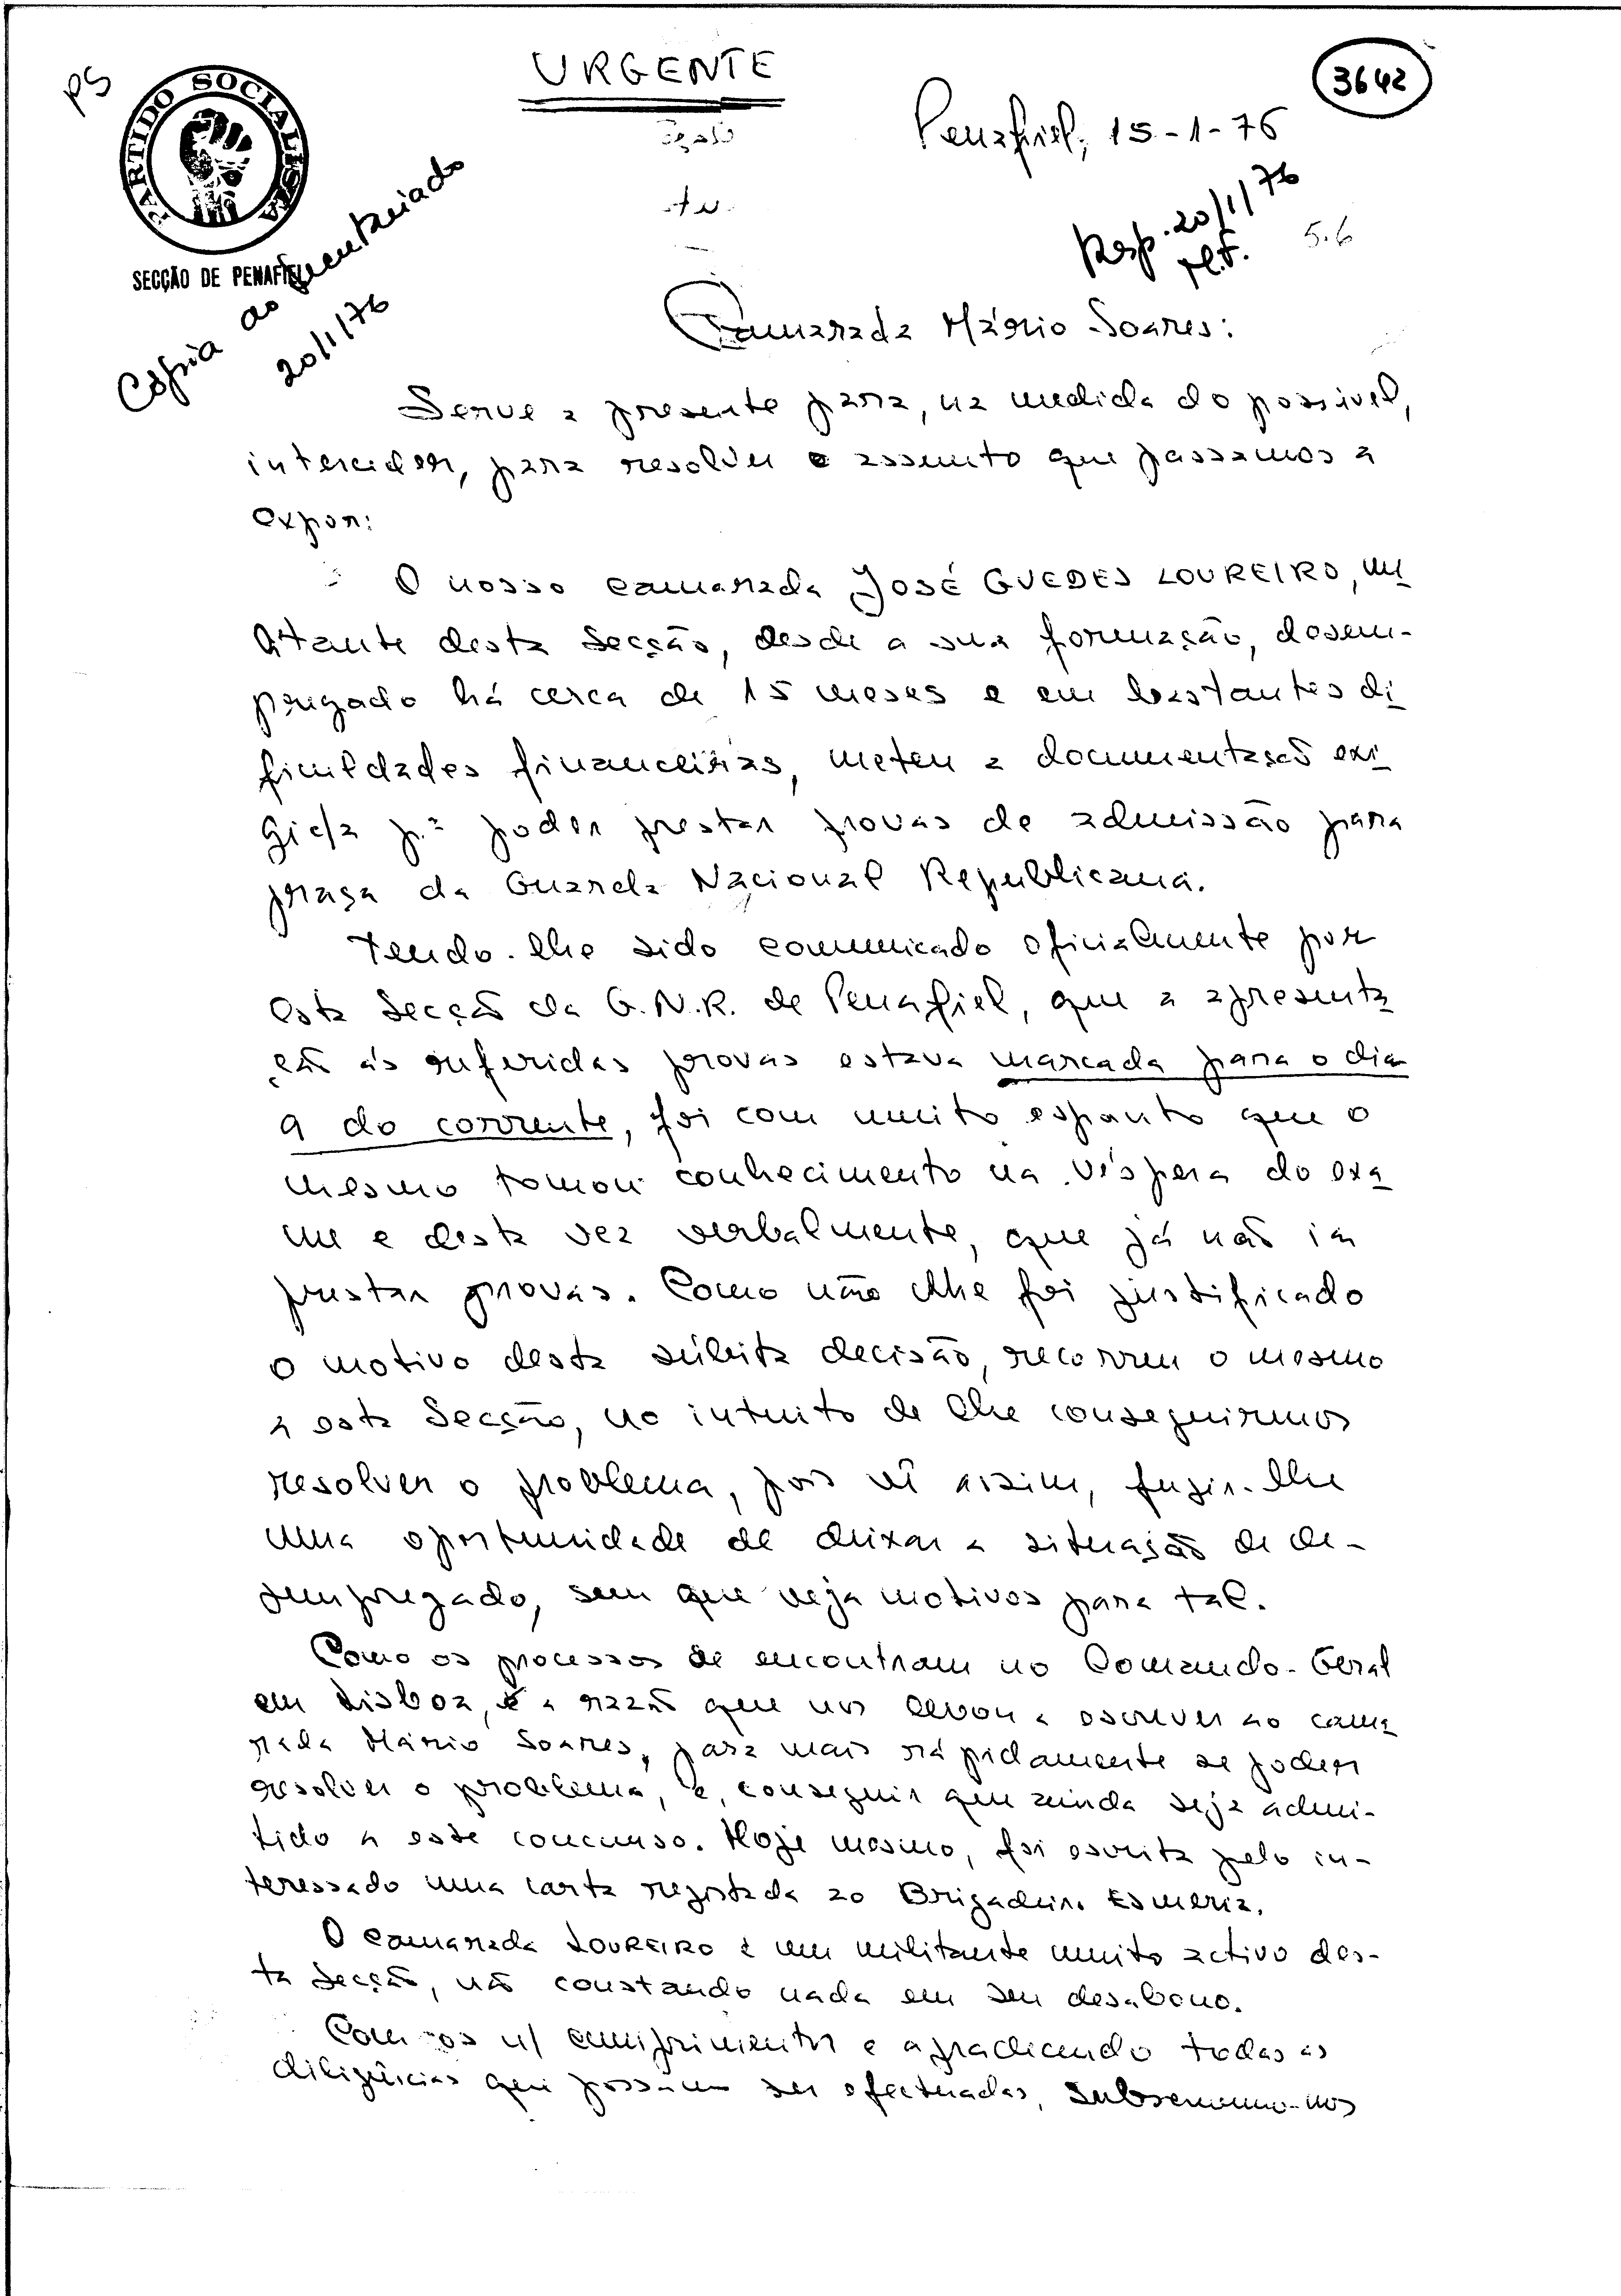 PS
PARTIDO SOCIALISTA
SECÇÃO DE PENAFIEL
URGENTE
3642
Penafiel, 15-1-76
Resp. 20/1/76
5.6
Cópia ao
20/1/76
Camarada Mário Soares:
Serve a presente para, na medida do possível,
interceder, para resolver o assunto que passamos a
expor:
O nosso camarada JOSÉ GUEDES LOUREIRO, mi
litante desta Secção, desde a sua formação, desem-
pregado há cerca de 15 meses e em bastantes di
ficuldades financeiras, meteu a documentação exi
gida p.ª poder prestar provas de admissão para
praça da Guarda Nacional Republicana.
Tendo-lhe sido comunicado oficialmente por
esta Secção da G.N.R. de Penafiel, que a apresenta
ção às referidas provas estava marcada para o dia
9 do corrente, foi com muito espanto que o
mesmo tomou conhecimento na véspera do exa
me e desta vez verbalmente, que já não ia
prestar provas. Como não lhe foi justificado
o motivo desta súbita decisão, recorreu o mesmo
a esta Secção, no intuito de lhe conseguirmos
resolver o problema, pois vê assim, fugir-lhe
uma oportunidade de deixar a situação de de-
sempregado, sem que veja motivos para tal.
Como os processos se encontram no Comando-Geral
em Lisboa, é a razão que nos levou a escrever ao cama
rada Mário Soares, para mais rápidamente se poder
resolver o problema, e, conseguir que ainda seja admi-
tido a este concurso. Hoje mesmo, foi escrita pelo in-
teressado uma carta registada ao Brigadeiro Esmeriz.
O camarada LOUREIRO é um militante muito activo des-
ta Secção, não constando nada em seu desabono.
Com os n/ cumprimentos e agradecendo todas as
diligências que possam ser efectuadas, subscrevemo-nos